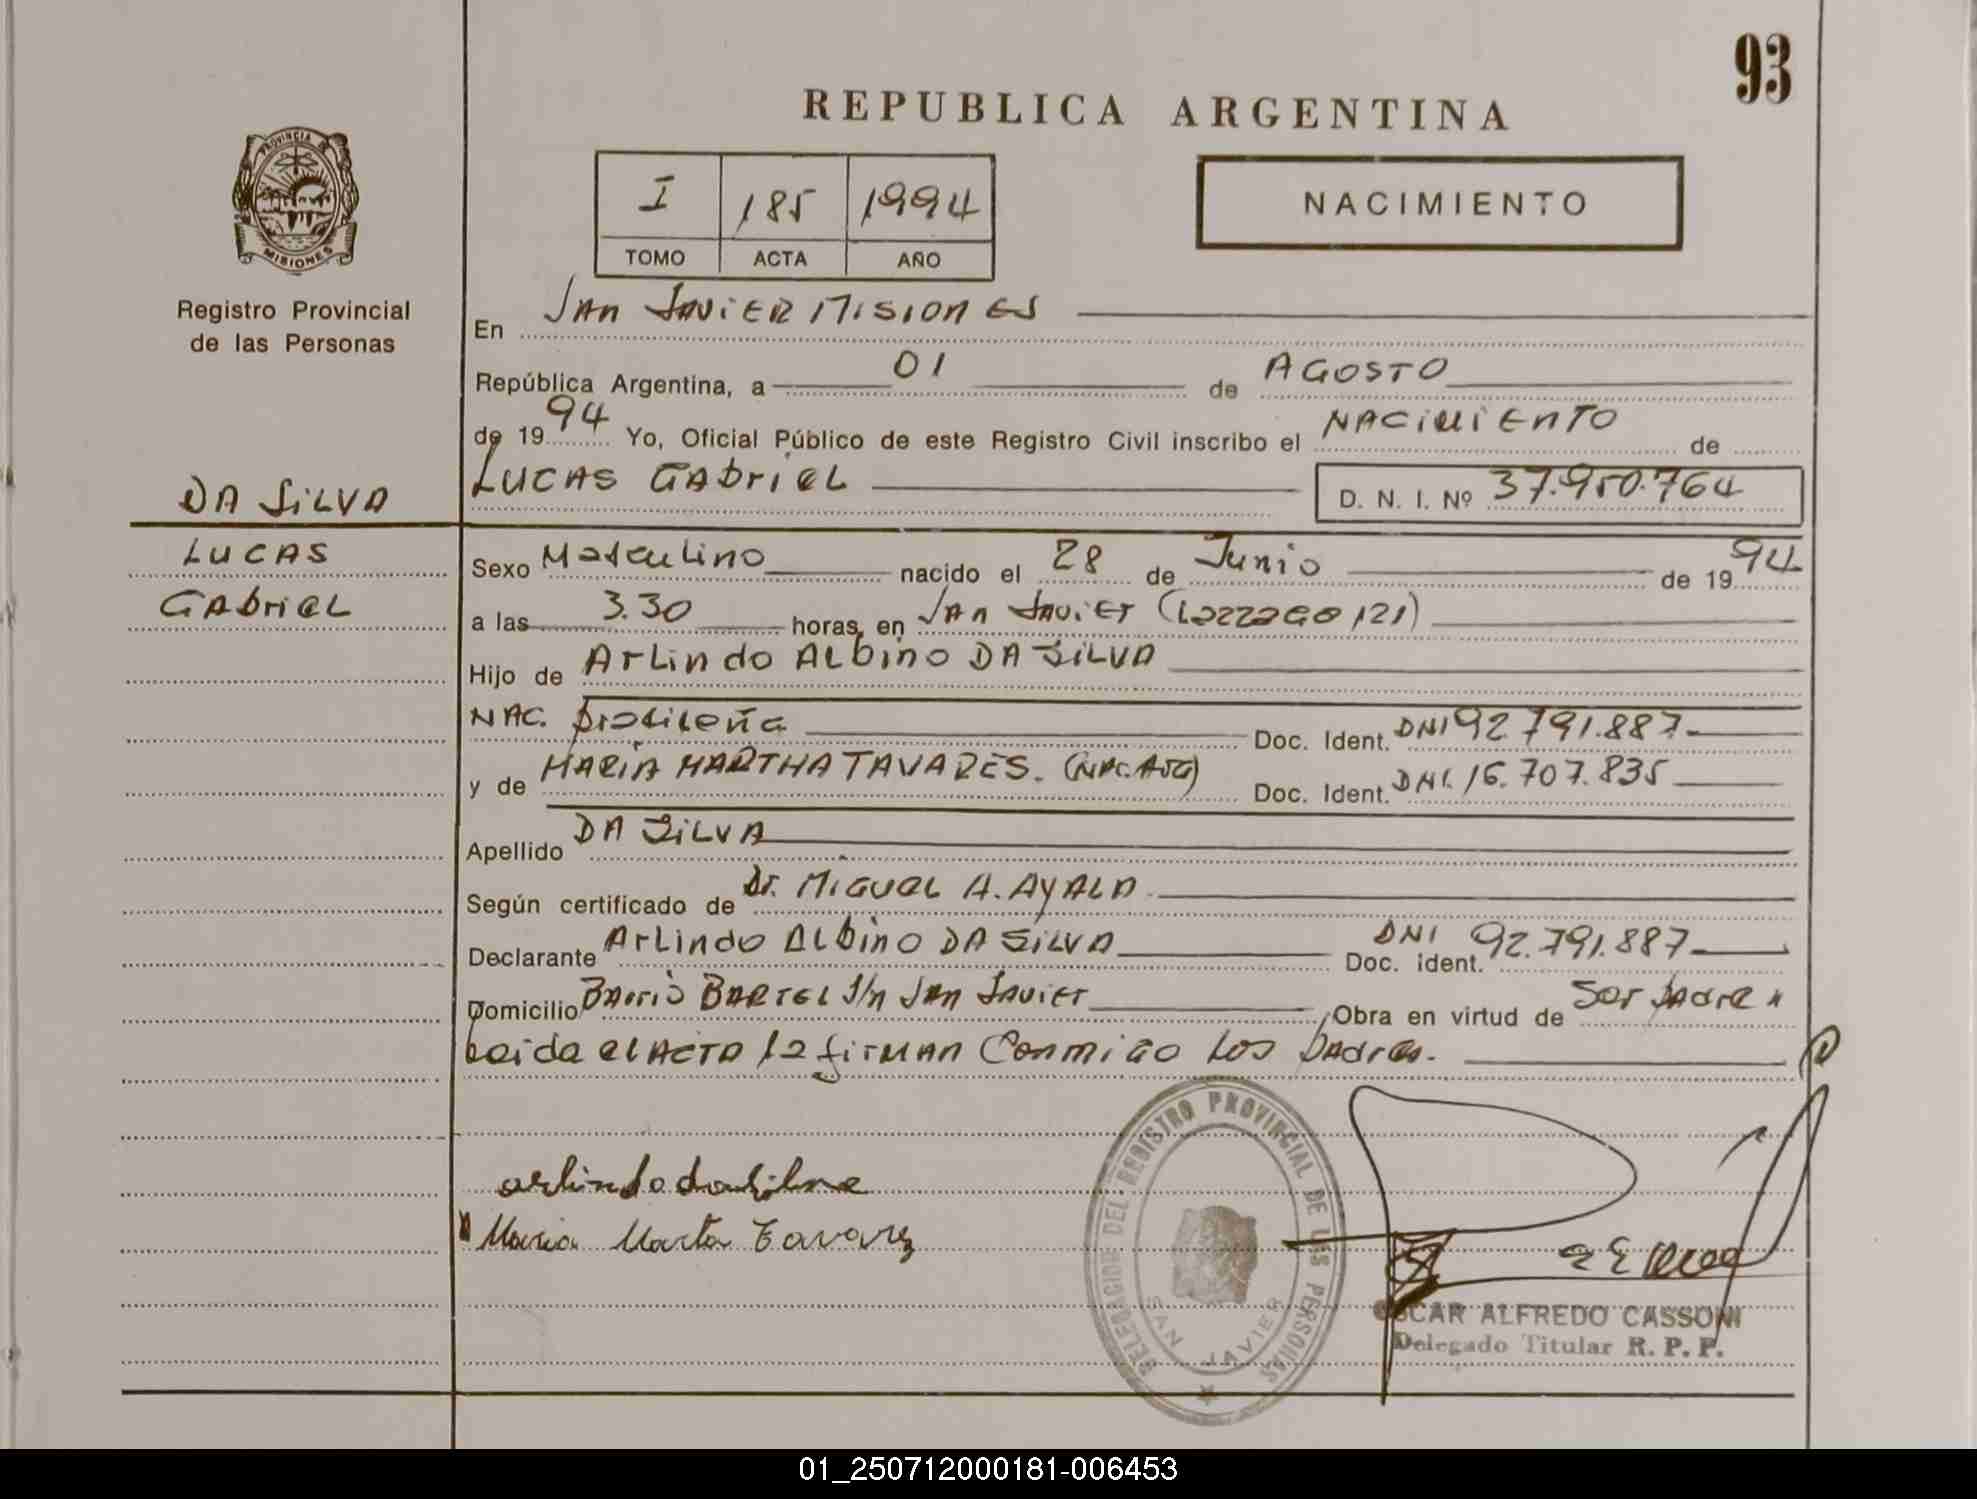 93
REPUBLICA ARGENTINA
PROVINCIA DE
MISIONES
I 185 1994
TOMO ACTA AÑO
NACIMIENTO
Registro Provincial
de las Personas
En SAN JAVIER MISIONES
República Argentina, a 01 de AGOSTO
de 1994 Yo, Oficial Público de este Registro Civil inscribo el NACIMIENTO de
LUCAS GAbriEL D. N. I. Nº 37.950.764
DA SILVA
LUCAS
GAbriEL
Sexo Masculino nacido el 28 de Junio de 1994
a las 3.30 horas, en SAN JAVIER (Lazzago 121)
Hijo de ArLindo ALbino DA SILVA
NAC. brasileña Doc. Ident. DNI 92.791.887-
y de MARÍA MARTHA TAVARES. (NAC. ARG) Doc. Ident. DNI. 16.707.835
Apellido DA SILVA
Según certificado de Dr. MIGUEL A. AYALA
Declarante ArLindo ALbino DA SILVA Doc. ident. DNI 92.791.887
Domicilio BArrio BARTEL S/n SAN JAVIER Obra en virtud de Ser pAdre "
Leida el ACTA la firMAN Conmigo Los pAdres.
arlindo da silva
Maria Marta Tavarez
DELEGACION DEL REGISTRO PROVINCIAL DE LAS PERSONAS
SAN JAVIER
OSCAR ALFREDO CASSONI
Delegado Titular R. P. P.
01_250712000181-006453